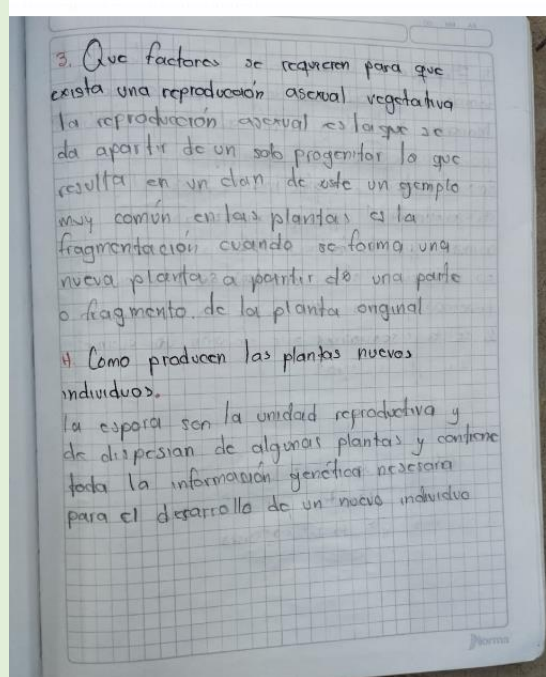 3. Que factores se requieren para que
exista una reproducción asexual vegetativa
la reproducción asexual es la que se
da apartir de un solo progenitor lo que
resulta en un clan de este un gemplo
muy común en las plantas es la
fragmentación cuando se forma una
nueva planta a partir de una parte
o fragmento. de la planta original
4 Como producen las plantas nuevos
individuos.
la espora son la unidad reproductiva y
de dispesian de algunas plantas y contiene
toda la información genética nesesaria
para el desarrollo de un nuevo individuo
Norma